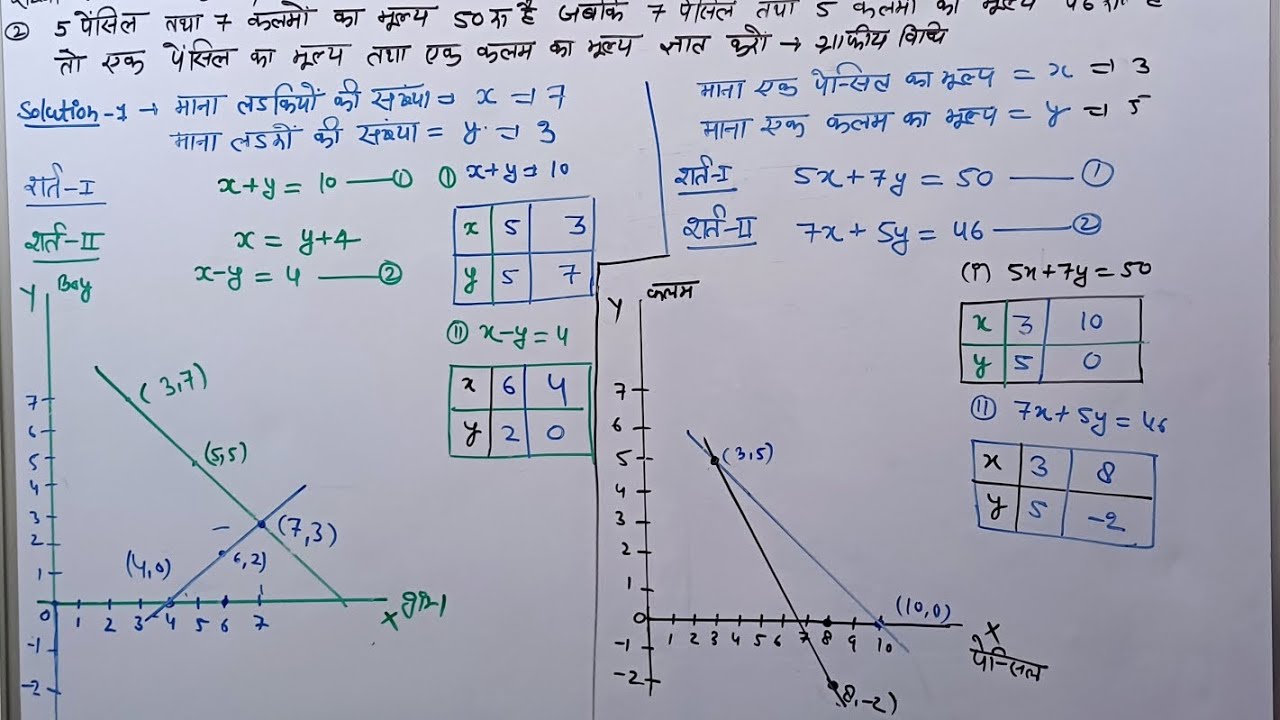 ② 5 पेंसिल तथा 7 कलमों का मूल्य 50 रु है जबकि 7 पेंसिल तथा 5 कलमों का मूल्य 46
तो एक पेंसिल का मूल्य तथा एक कलम का मूल्य ज्ञात करो → ग्राफीय विधि
Solution-1 → माना लडकियों की संख्या = x = 7
माना लडकों की संख्या = y = 3
शर्त-I x+y = 10 —— ①
शर्त-II x = y+4
x-y = 4 —— ②
① x+y = 10
x 5 3
y 5 7
⑪ x-y = 4
x 6 4
y 2 0
Y Boy
(3,7)
(5,5)
(7,3)
6,2)
(4,0)
7
6
5
4
3
2
1
0 1 2 3 4 5 6 7
X
-1
-2
माना एक पेन्सिल का मूल्य = x = 3
माना एक कलम का मूल्य = y = 5
शर्त-I 5x+7y = 50 —— ①
शर्त-II 7x+5y = 46 —— ②
(i) 5x+7y = 50
x 3 10
y 5 0
⑪ 7x+5y = 46
x 3 8
y 5 -2
Y कलम
(3,5)
(10,0)
(8,-2)
7
6
5
4
3
2
1
0 1 2 3 4 5 6 7 8 9 10
X
पेन्सिल
-1
-2